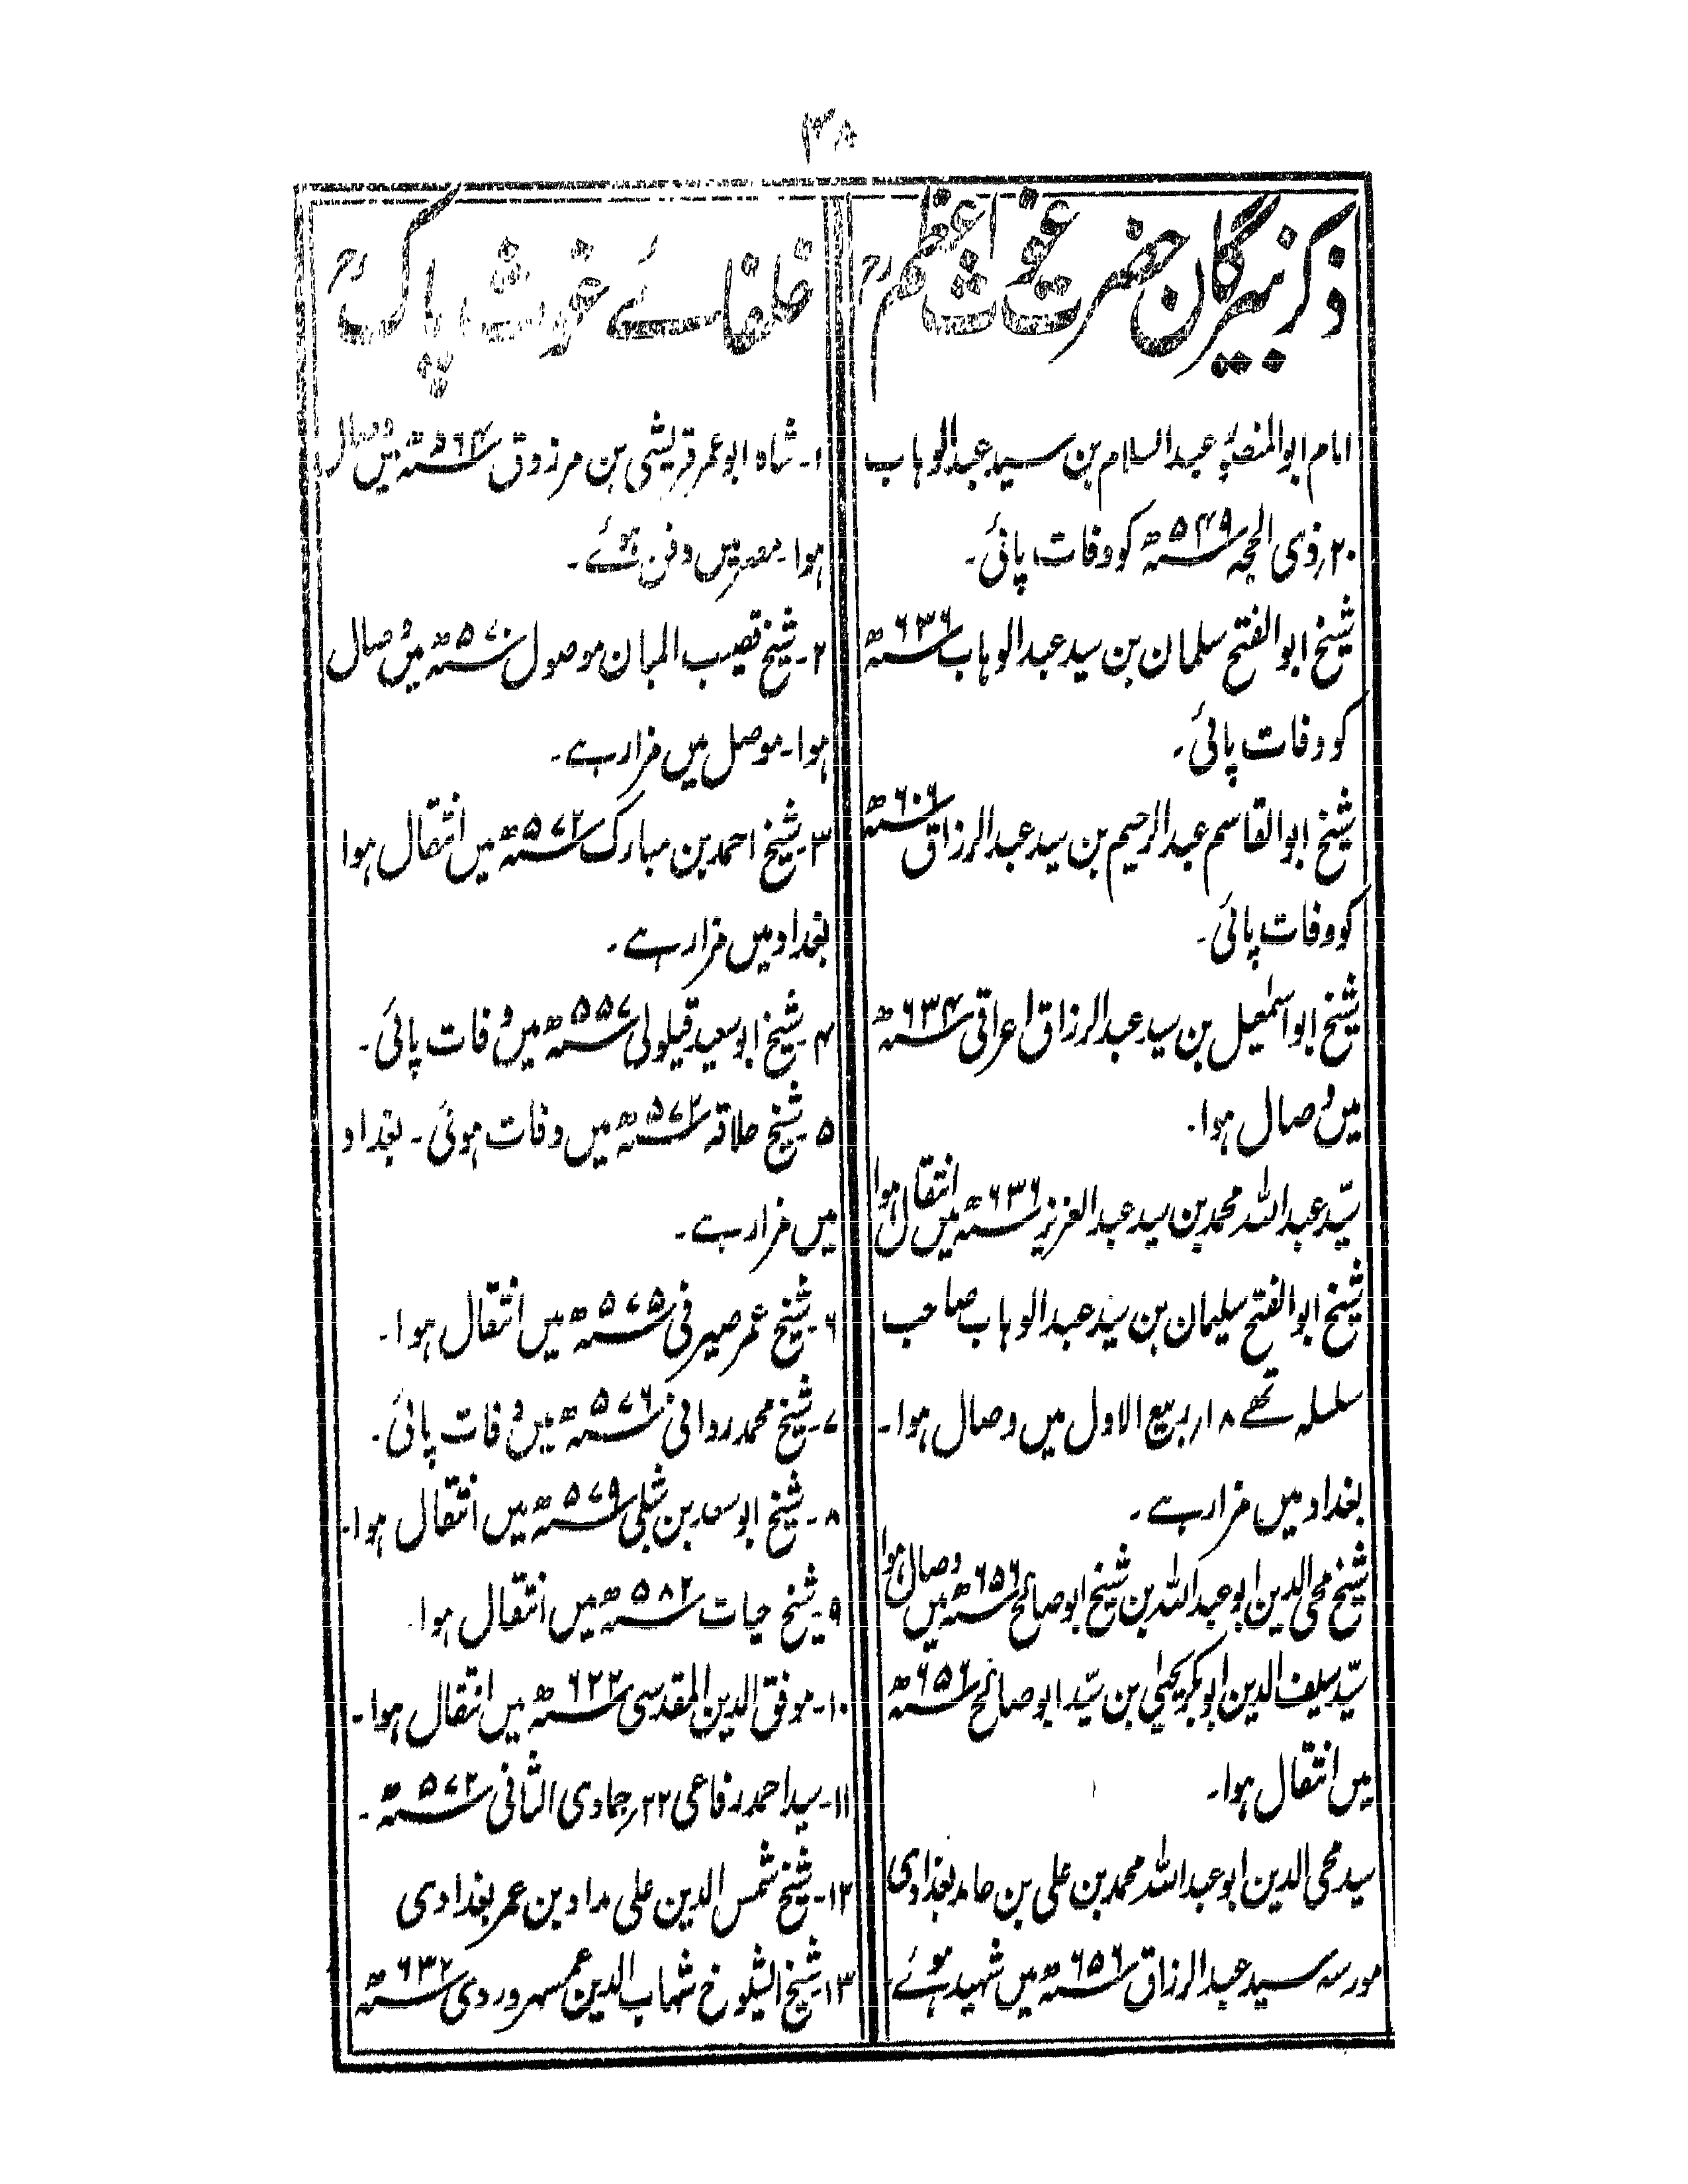 ۳۸
ذکر نبیرگان حضرت غوث اعظمؒ
امام ابوالمنصور عبدالسلام بن سید عبدالوہاب
۲۰؍ذی الحجہ ۵۴۹ھ کو وفات پائی۔
شیخ ابوالفتح سلمان بن سید عبدالوہاب ۶۳۶ھ
کو وفات پائی۔
شیخ ابوالقاسم عبدالرحیم بن سید عبدالرزاق ۶۰۶ھ
کو وفات پائی۔
شیخ ابو اسمٰعیل بن سید عبدالرزاق اعراقی ۶۳۴ھ
میں وصال ہوا۔
سیّد عبداللہ محمد بن سید عبدالعزیز ۶۳۶ھ میں انتقال ہوا
شیخ ابوالفتح سلیمان بن سیّد عبدالوہاب صاحب
سلسلہ تھے ۱۸؍ربیع الاول میں وصال ہوا۔
بغداد میں مزار ہے۔
شیخ محی الدین ابو عبداللہ بن شیخ ابو صالح ۶۵۶ھ میں وصال ہوا
سیّد سیف الدین ابوبکر یحیٰی بن سیّد ابو صالح ۶۵۶ھ
میں انتقال ہوا۔
سید محی الدین ابو عبداللہ محمد بن علی بن حامد بغدادی
مورسہ سید عبدالرزاق ۶۵۶ھ میں شہید ہوئے
خلفائے غوث پاکؒ
۱۔ شاہ ابو عمر قریشی بن مرزوق ۵۶۴ھ میں وصال
ہوا۔ مصر میں دفن ہوئے۔
۲۔ شیخ قصیب البان موصول ۵۷۰ھ میں وصال
ہوا۔ موصل میں مزار ہے۔
۳۔ شیخ احمد بن مبارک ۵۷۲ھ میں انتقال ہوا
بغداد میں مزار ہے۔
۴۔ شیخ ابو سعید قیلولی ۵۵۷ھ میں وفات پائی۔
۵۔ شیخ حلاقہ ۵۷۲ھ میں وفات ہوئی۔ بغداد
میں مزار ہے۔
۶۔ شیخ عمر صیرفی ۵۷۵ھ میں انتقال ہوا۔
۷۔ شیخ محمد روانی ۵۷۶ھ میں وفات پائی۔
۸۔ شیخ ابو سعد بن شلی ۵۷۹ھ میں انتقال ہوا۔
۹۔ شیخ حیات ۵۸۲ھ میں انتقال ہوا۔
۱۰۔ موفق الدین المقدسی ۶۲۲ھ میں انتقال ہوا۔
۱۱۔ سید احمد رفاعی ۲۲؍جمادی الثانی ۵۷۲ھ۔
۱۲۔ شیخ شمس الدین علی مداد بن عمر بغدادی
۱۳۔ شیخ الشیوخ شہاب الدین عمر سہروردی ۶۳۲ھ